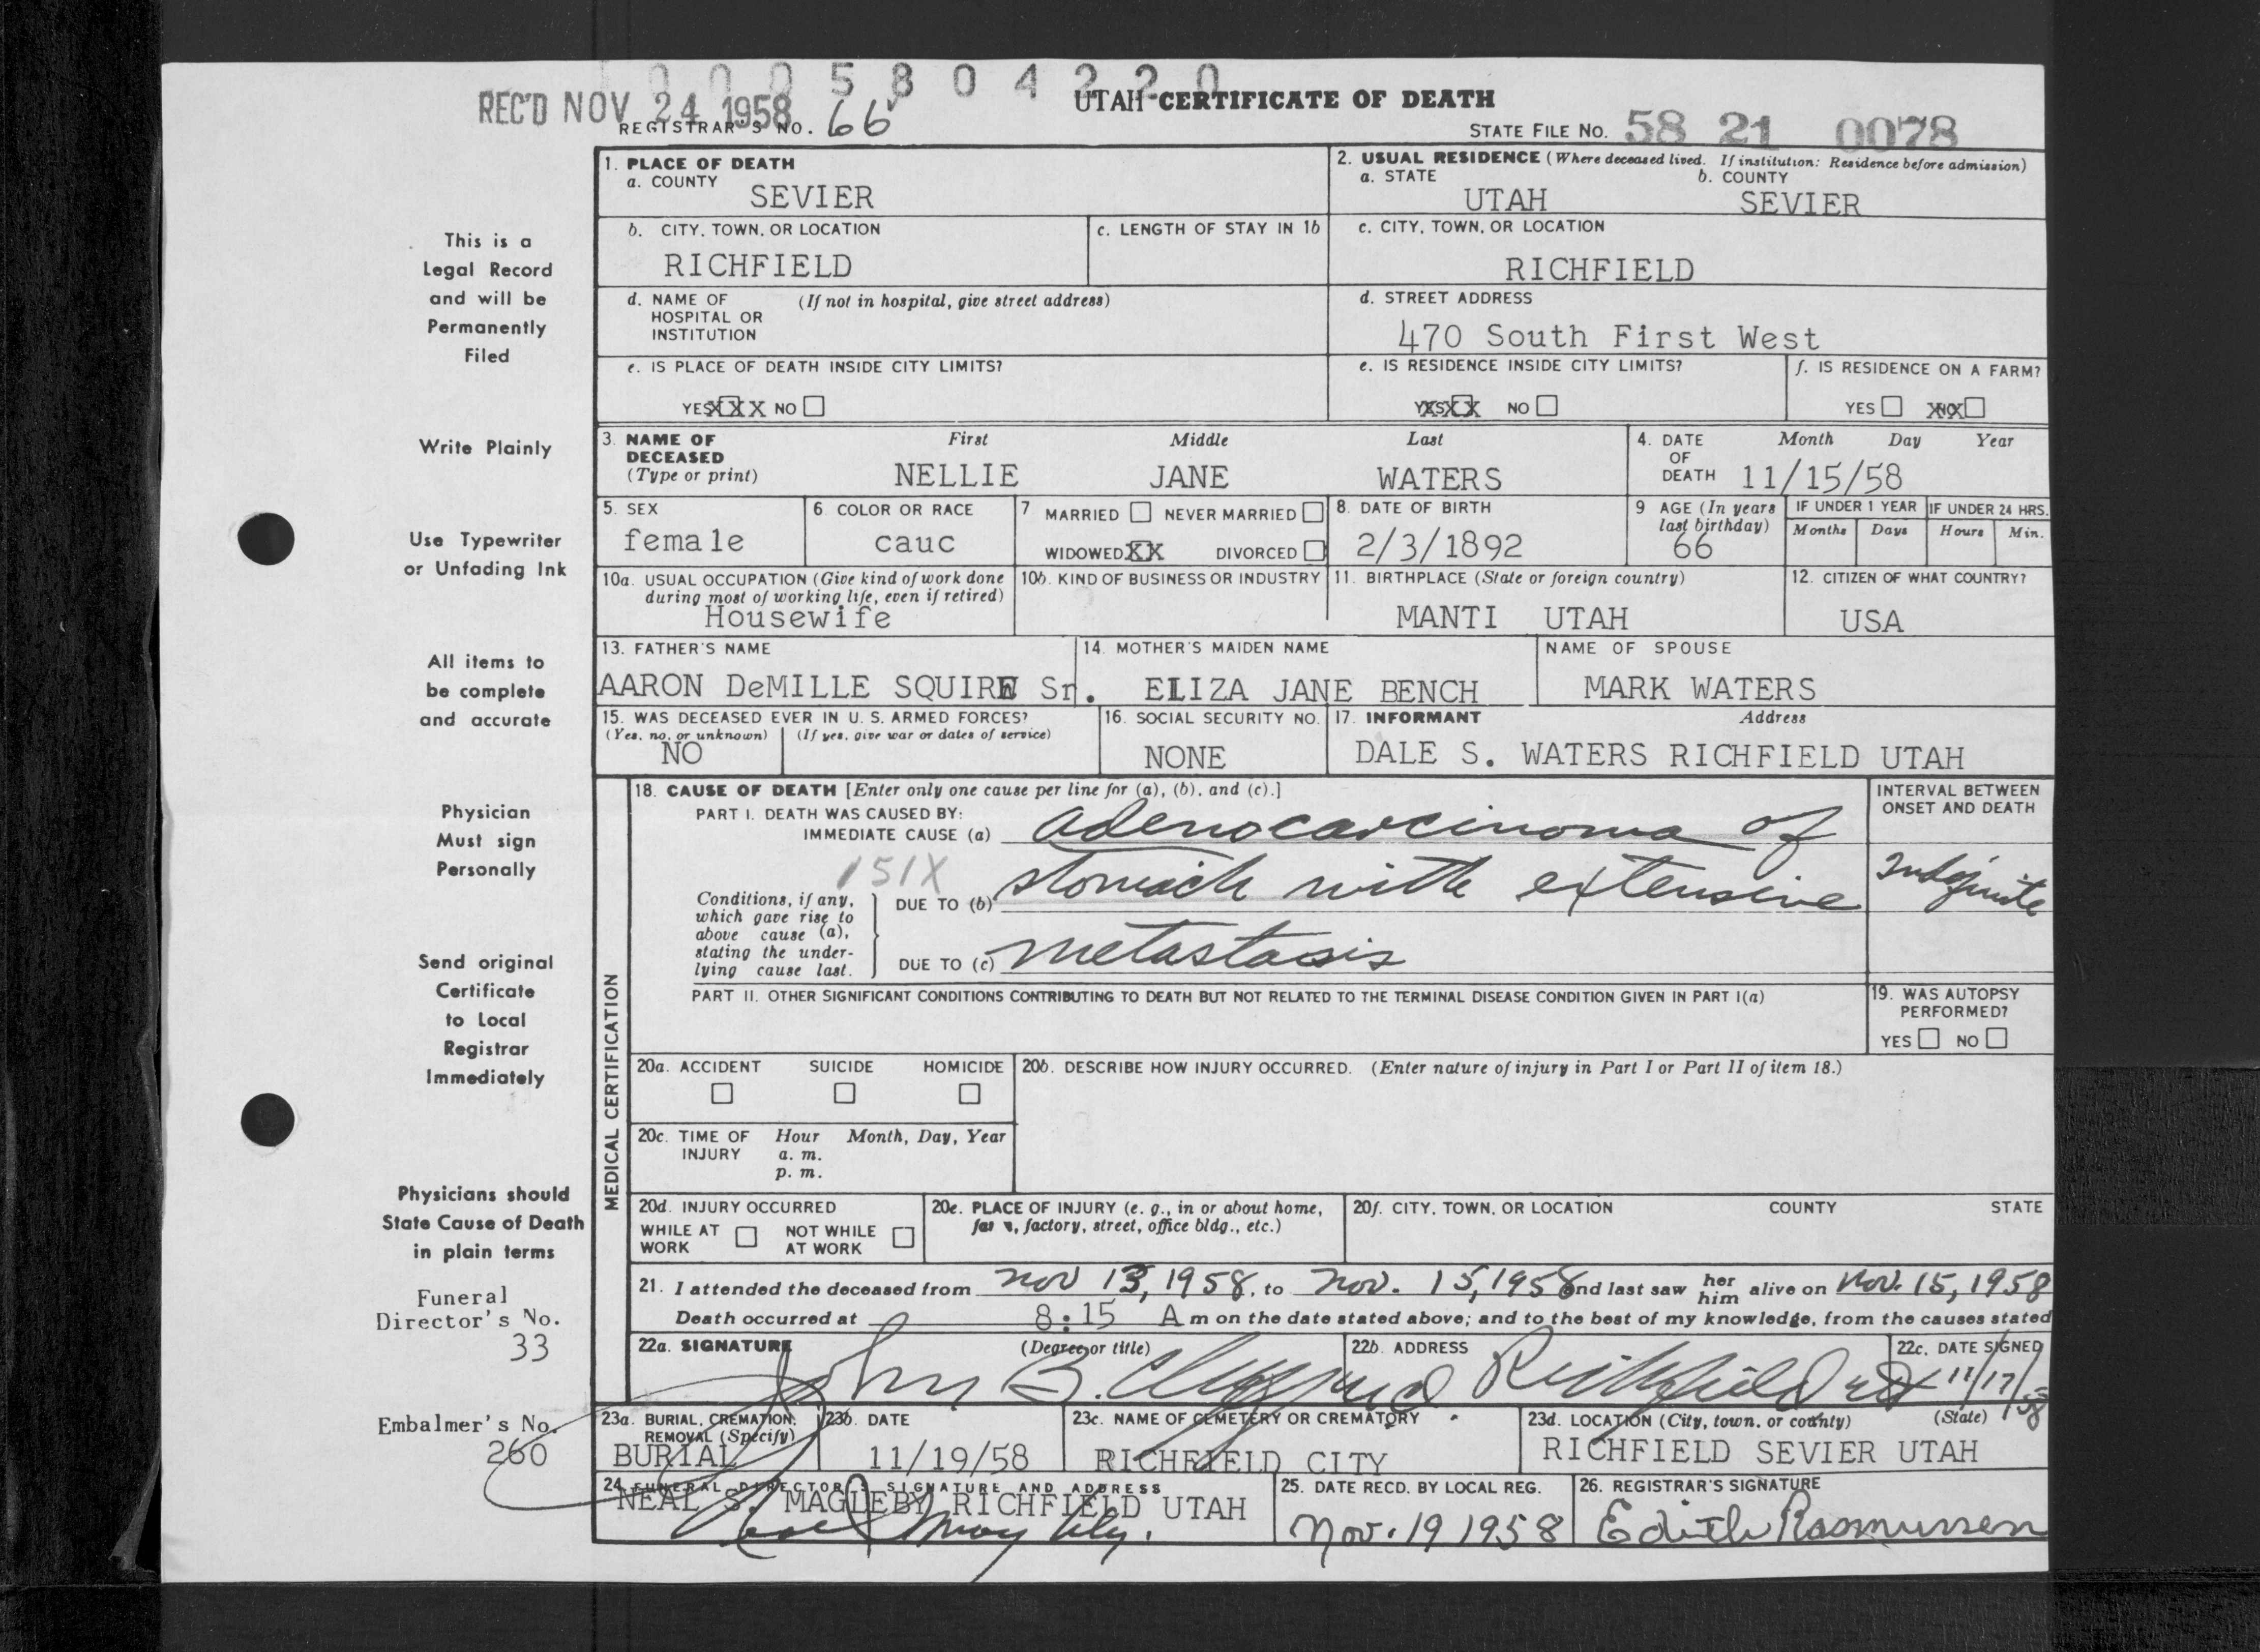 0 0 0 5 8 0 4 2 2 0
REC'D NOV 24 1958
REGISTRAR'S NO. 66
UTAH CERTIFICATE OF DEATH
STATE FILE NO. 58 21 0078
This is a
Legal Record
and will be
Permanently
Filed
Write Plainly
Use Typewriter
or Unfading Ink
All items to
be complete
and accurate
Physician
Must sign
Personally
Send original
Certificate
to Local
Registrar
Immediately
Physicians should
State Cause of Death
in plain terms
Funeral
Director's No.
33
Embalmer's No.
260
1. PLACE OF DEATH
a. COUNTY
SEVIER
2. USUAL RESIDENCE (Where deceased lived. If institution: Residence before admission)
a. STATE b. COUNTY
UTAH SEVIER
b. CITY, TOWN, OR LOCATION
RICHFIELD
c. LENGTH OF STAY IN 1b
c. CITY, TOWN, OR LOCATION
RICHFIELD
d. NAME OF (If not in hospital, give street address)
HOSPITAL OR
INSTITUTION
d. STREET ADDRESS
470 South First West
e. IS PLACE OF DEATH INSIDE CITY LIMITS?
YES XXX NO
e. IS RESIDENCE INSIDE CITY LIMITS?
YES XX NO
f. IS RESIDENCE ON A FARM?
YES NO XX
3. NAME OF DECEASED First Middle Last
(Type or print) NELLIE JANE WATERS
4. DATE OF DEATH Month Day Year
11/15/58
5. SEX
female
6. COLOR OR RACE
cauc
7. MARRIED NEVER MARRIED
WIDOWED XX DIVORCED
8. DATE OF BIRTH
2/3/1892
9. AGE (In years last birthday)
66
IF UNDER 1 YEAR
Months Days
IF UNDER 24 HRS.
Hours Min.
10a. USUAL OCCUPATION (Give kind of work done
during most of working life, even if retired)
Housewife
10b. KIND OF BUSINESS OR INDUSTRY
11. BIRTHPLACE (State or foreign country)
MANTI UTAH
12. CITIZEN OF WHAT COUNTRY?
USA
13. FATHER'S NAME
AARON DeMILLE SQUIRE Sr.
14. MOTHER'S MAIDEN NAME
ELIZA JANE BENCH
NAME OF SPOUSE
MARK WATERS
15. WAS DECEASED EVER IN U. S. ARMED FORCES?
(Yes, no, or unknown) (If yes, give war or dates of service)
NO
16. SOCIAL SECURITY NO.
NONE
17. INFORMANT Address
DALE S. WATERS RICHFIELD UTAH
MEDICAL CERTIFICATION
18. CAUSE OF DEATH [Enter only one cause per line for (a), (b), and (c).]
PART I. DEATH WAS CAUSED BY:
IMMEDIATE CAUSE (a) adenocarcinoma of
151X
Conditions, if any,
which gave rise to
above cause (a),
stating the under-
lying cause last.
DUE TO (b) stomach with extensive
DUE TO (c) metastasis
INTERVAL BETWEEN
ONSET AND DEATH
Indefinite
PART II. OTHER SIGNIFICANT CONDITIONS CONTRIBUTING TO DEATH BUT NOT RELATED TO THE TERMINAL DISEASE CONDITION GIVEN IN PART I(a)
19. WAS AUTOPSY
PERFORMED?
YES NO
20a. ACCIDENT SUICIDE HOMICIDE
20b. DESCRIBE HOW INJURY OCCURRED. (Enter nature of injury in Part I or Part II of item 18.)
20c. TIME OF INJURY Hour Month, Day, Year
a. m.
p. m.
20d. INJURY OCCURRED
WHILE AT WORK NOT WHILE AT WORK
20e. PLACE OF INJURY (e. g., in or about home,
farm, factory, street, office bldg., etc.)
20f. CITY, TOWN, OR LOCATION COUNTY STATE
21. I attended the deceased from Nov 13, 1958, to Nov. 15, 1958 and last saw her him alive on Nov. 15, 1958
Death occurred at 8:15 A m on the date stated above; and to the best of my knowledge, from the causes stated
22a. SIGNATURE (Degree or title)
John B.
22b. ADDRESS
Richfield Ut
22c. DATE SIGNED
11/17/58
23a. BURIAL, CREMATION,
REMOVAL (Specify)
BURIAL
23b. DATE
11/19/58
23c. NAME OF CEMETERY OR CREMATORY
RICHFIELD CITY
23d. LOCATION (City, town, or county) (State)
RICHFIELD SEVIER UTAH
24. FUNERAL DIRECTOR'S SIGNATURE AND ADDRESS
NEAL S. MAGLEBY RICHFIELD UTAH
Neal S Magleby.
25. DATE RECD. BY LOCAL REG.
Nov. 19 1958
26. REGISTRAR'S SIGNATURE
Edith Rasmussen